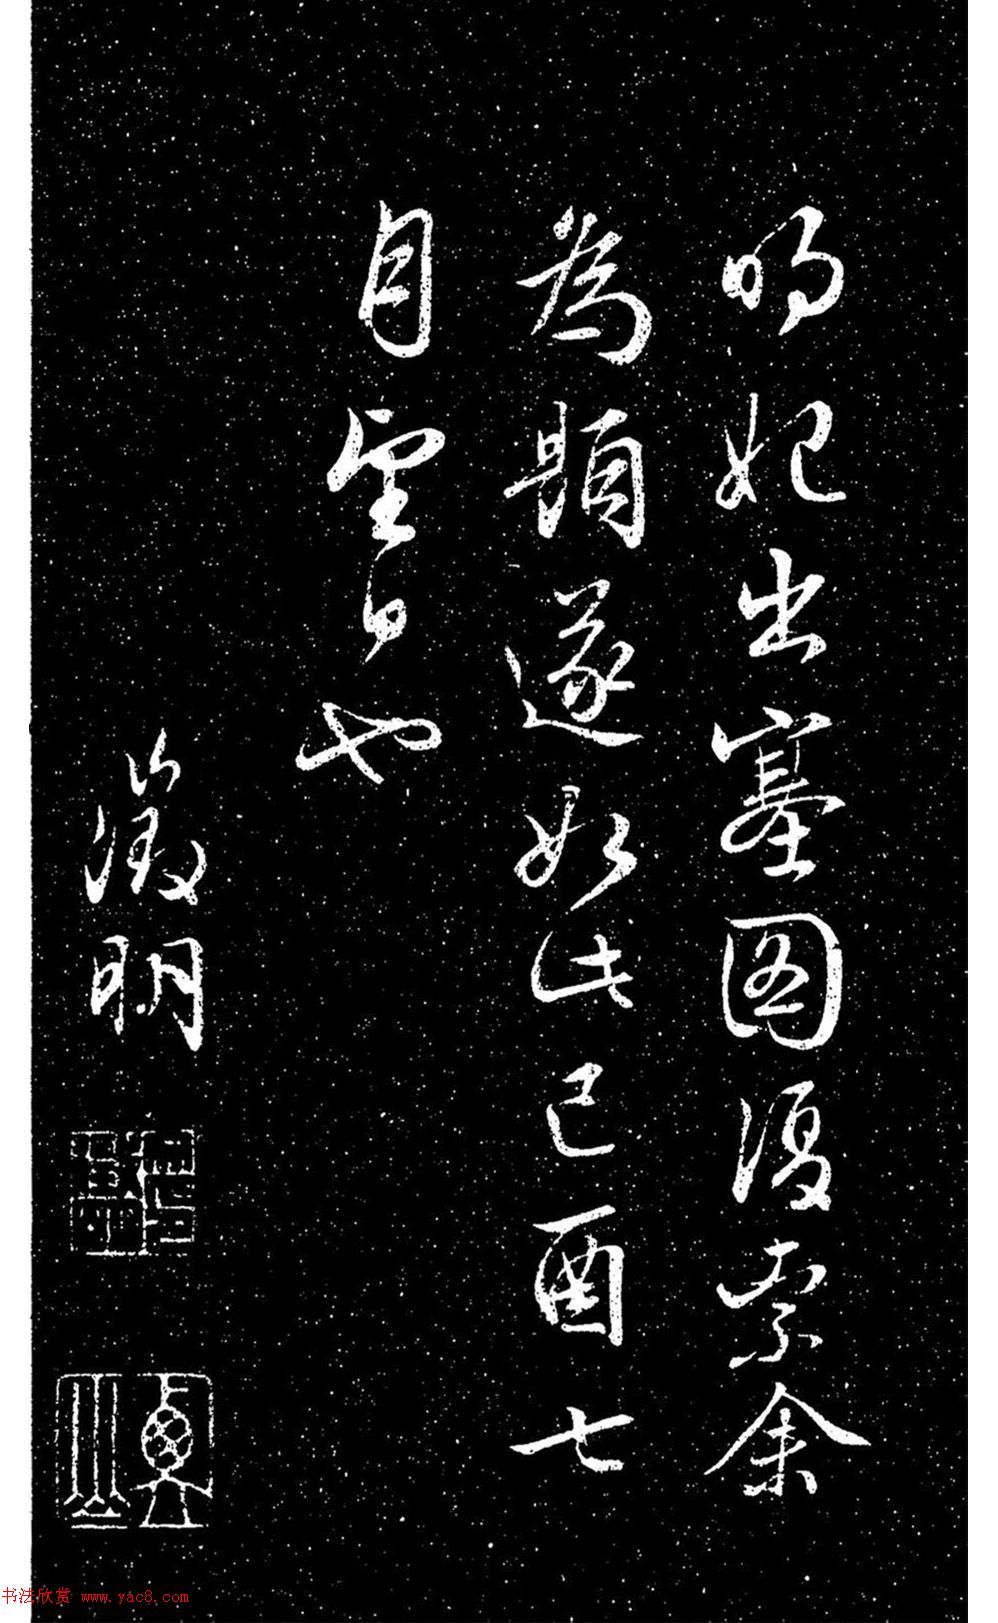 明妃出塞图復索余
為題遂如此己酉七
月望日也
徵明
书法欣赏 www.yac8.com